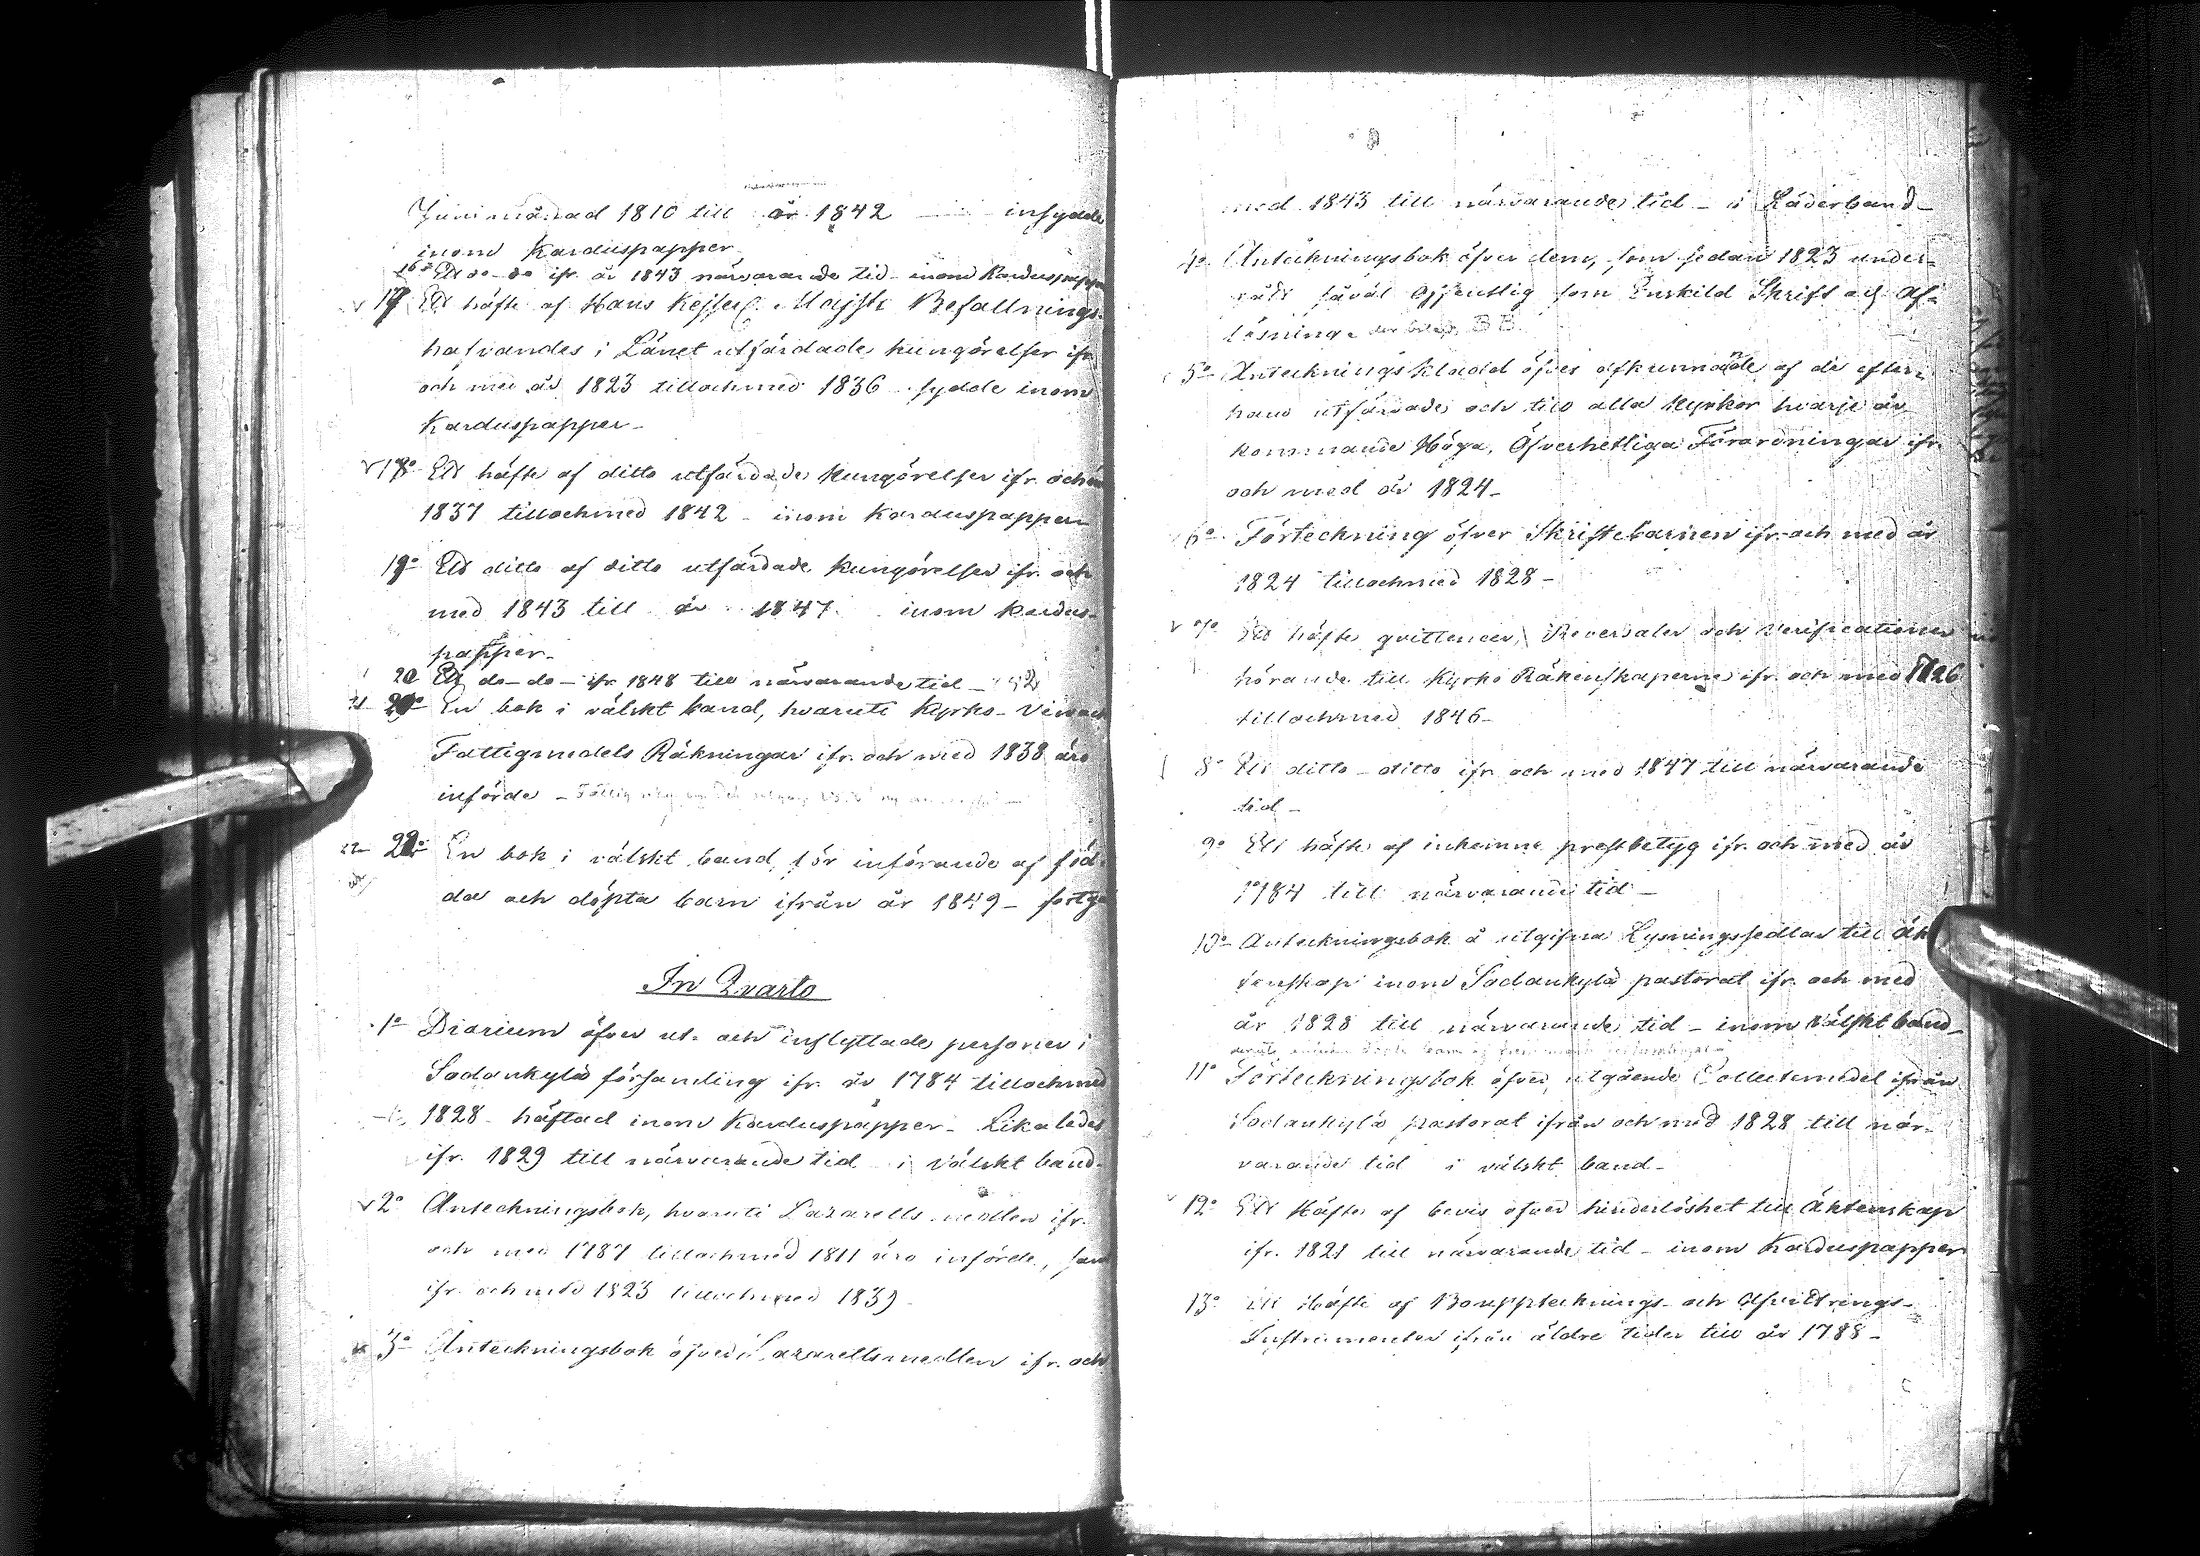 Junimånad 1810 till år 1842 insydde
inom Karduspapper
16° Ett do- do ifr. år 1843 närvarande tid- inom Karduspapper
17 Ett häfte af Hans Kejserl. Majsts Befallnings-
hafvandes i Länet utfärdade kungörelser ifr.
och med år 1823 tillochmed 1836 sydde inom
Karduspapper-
18° Ett häfte af ditto utfärdade kungörelser ifr. och
1837 tillochmed 1842 - inom karduspapper-
19° Ett ditto af ditto utfärdade kungörelser ifr. och
med 1843 till år 1847 inom kardus-
papper-
20 Ett do- do- ifr 1848 till närvarande tid-
21 En bok i välskt band, hvaruti Kyrko- Vin och
Fattigmedels Räkningar ifr. och med 1838 äro
införde -
22 22° En bok i välskt band, för införande af föd-
da och döpta barn ifrån år 1849-
In Qvarto
1° Diarium öfver ut- och inflyttade personer i
Sodankylä församling ifr. år 1784 tillochmed
1828- häftad inom Karduspapper- Likaledes
ifr. 1829 till närvarande tid i välskt band-
2° Anteckningsbok, hvaruti Lazaretts medlen ifr.
och med 1787 tillochmed 1811 äro införde, samt
ifr. och med 1823 tillochmed 1839-
3° Anteckningsbok öfver Lazarettsmedlen ifr. och
med 1843 till närvarande tid- i Läderband-
4° Anteckningsbok öfver dem, som sedan 1823 under-
gått såväl Offentlig som Enskild Skrift och Af-
lösning-
5° Anteckningskladd öfver afkunnande af de efter-
hand utfärdade och till alla Kyrkor hvarje år
kommande Höga, Öfverhetliga Förordningar ifr.
och med år 1824-
6° Förteckning öfver Skriftebarnen ifr. och med år
1824 tillochmed 1828-
7° Ett häfte qvittencer, Reversaler och Verificationer
hörande till Kyrko Räkenskaperne ifr. och med 1826
tillochmed 1846-
8° Ett ditto- ditto ifr. och med 1847 till närvarande
tid-
9° Ett häfte af inkomne prestbetyg ifr. och med år
1784 till närvarande tid-
10° Anteckningsbok å utgifna Lysningssedlar till äk-
tenskap inom Sodankylä pastorat ifr. och med
år 1828 till närvarande tid- inom Välskt band-
11° Förteckningsbok öfver utgående Collectemedel ifrån
Sodankylä pastorat ifrån och med 1828 till när-
varande tid i välskt band-
12° Ett Häfte af bevis öfver hinderlöshet till Äktenskap
ifr. 1821 till närvarande tid- inom Karduspapper
13° Ett Häfte af Bouppteknings- och Afvittrings-
Instrumenter ifrån äldre tider till år 1788-